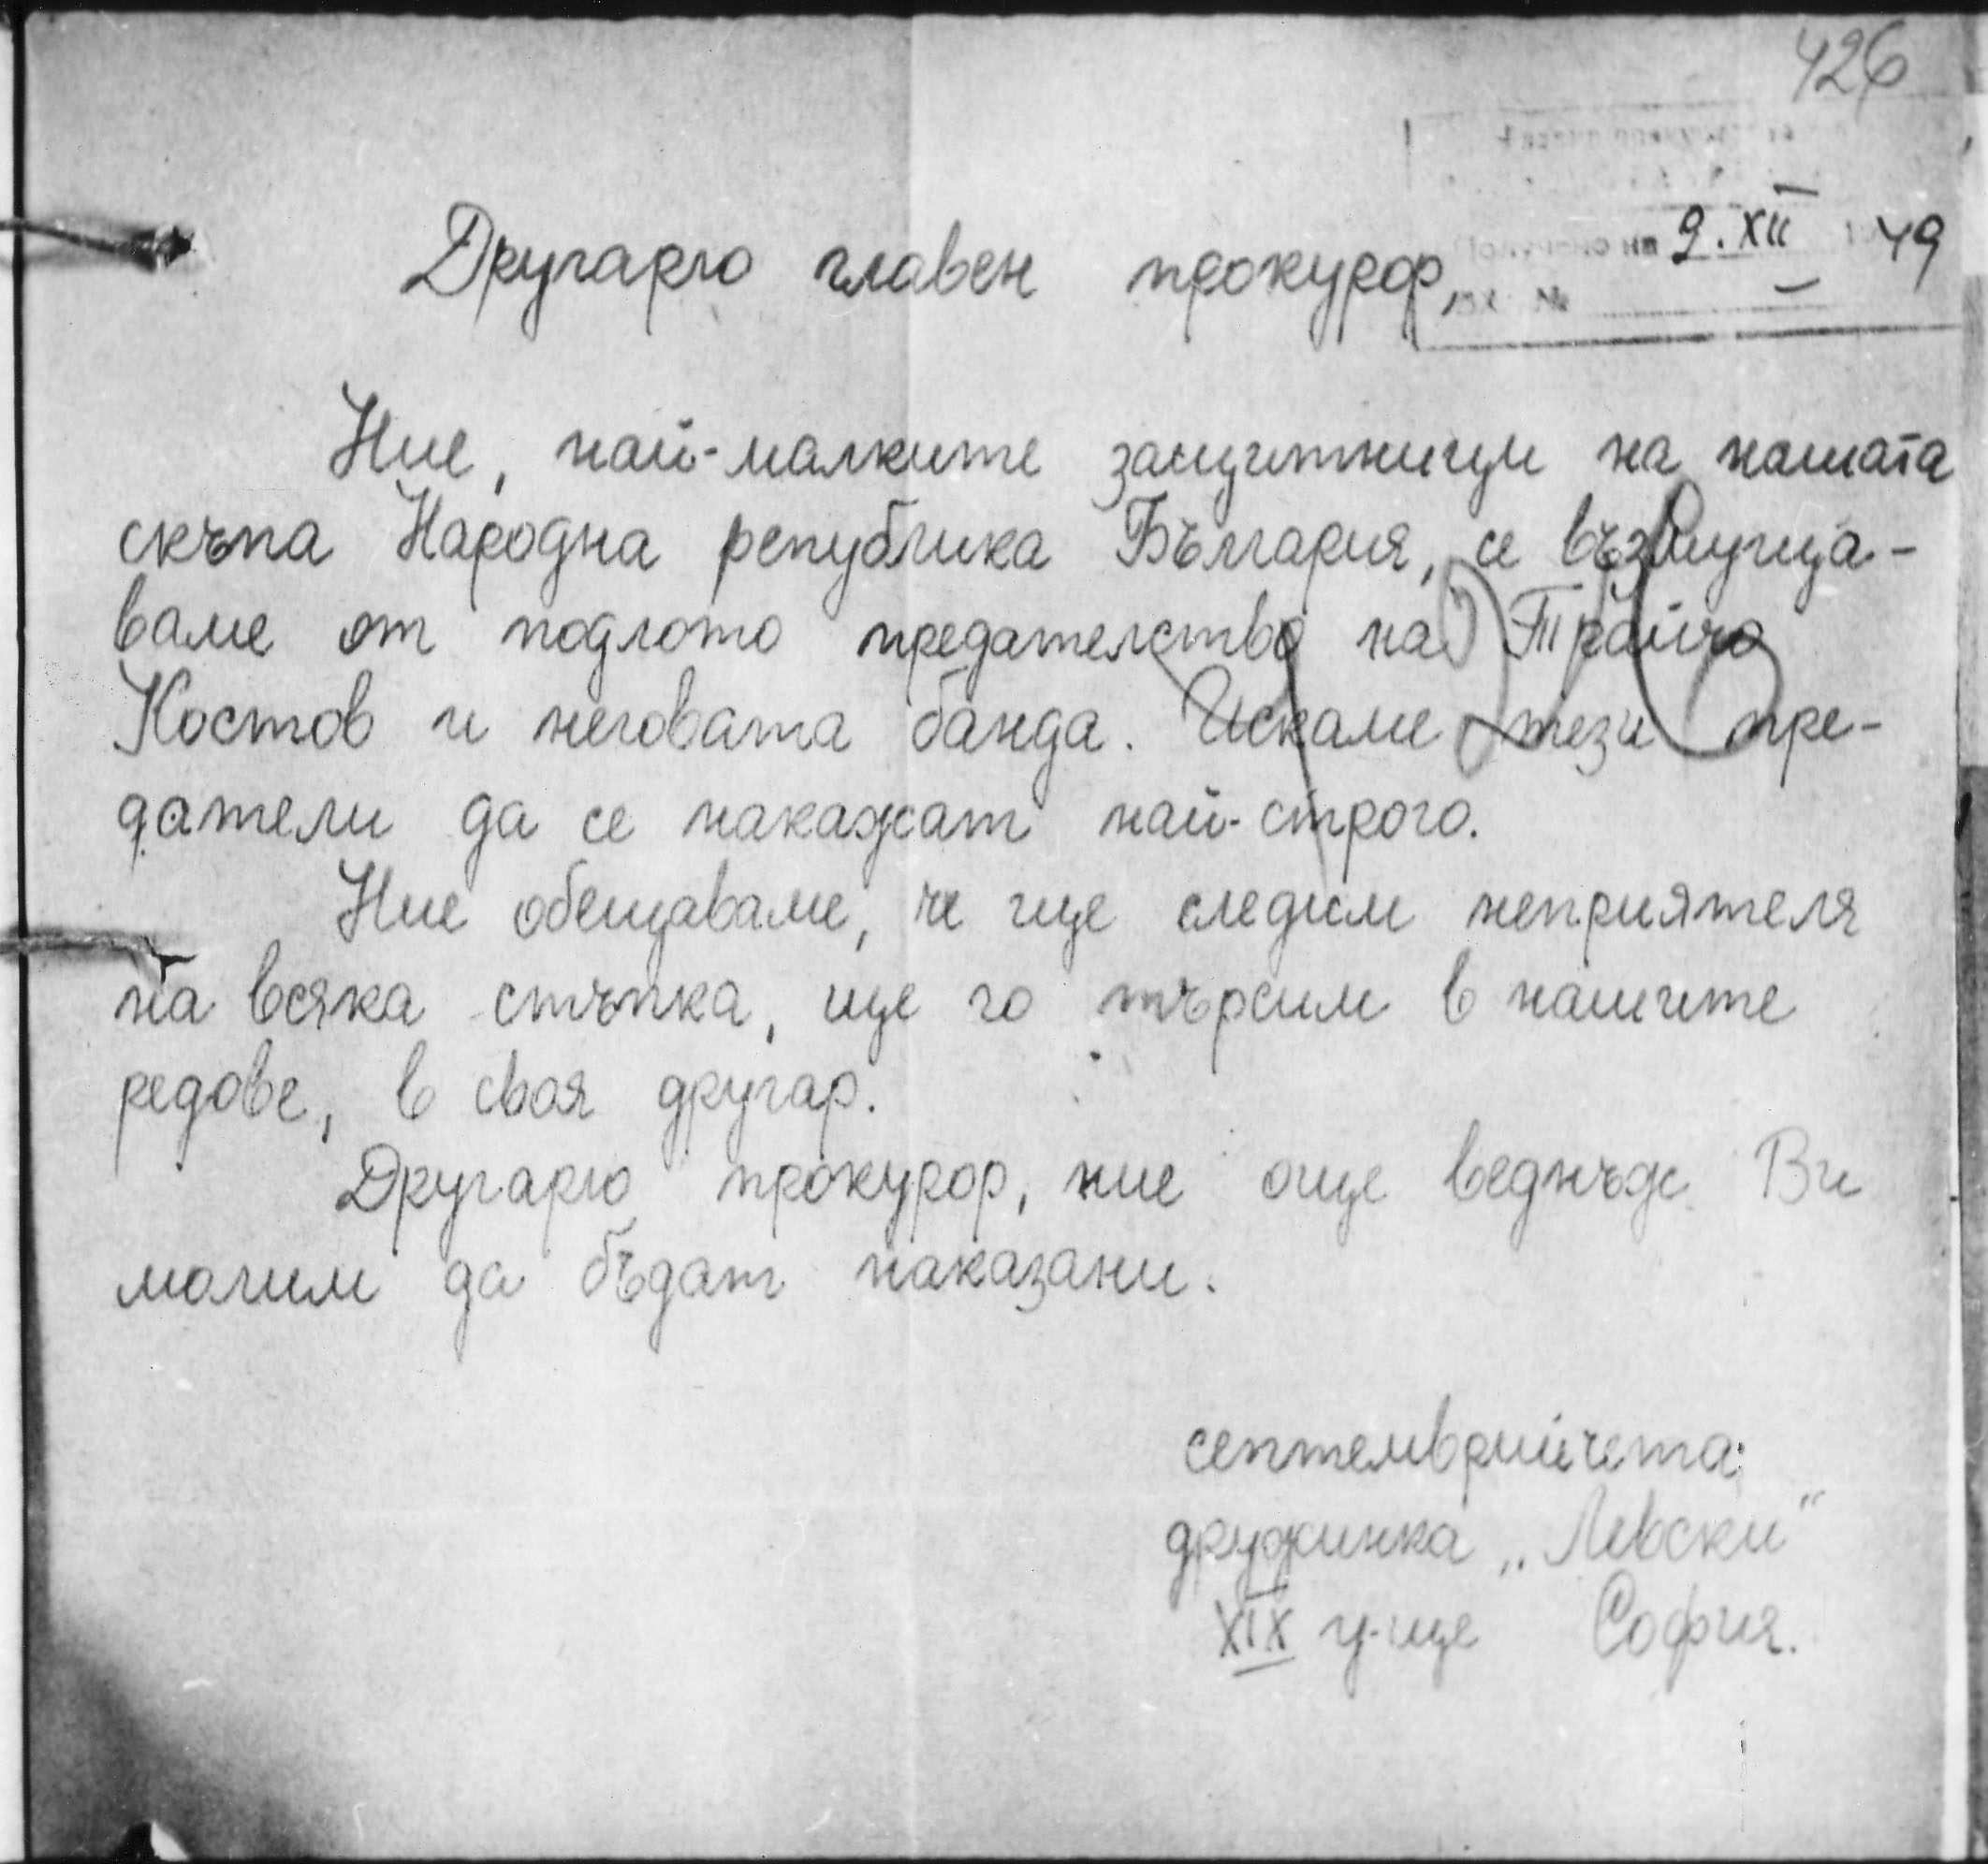 426
9.XII 49
Другарю главен прокурор,
Ние, най-малките защитници на нашата
скъпа Народна република България, се възмуща-
ваме от подлото предателство на Трайчо
Костов и неговата банда. Искаме тези пре-
датели да се накажат най-строго.
Ние обещаваме, че ще следим неприятеля
на всяка стъпка, ще го търсим в нашите
редове, в своя другар.
Другарю прокурор, ние още веднъж Ви
молим да бъдат наказани.
септемврийчета:
дружинка „Левски"
XIX у-ще София.